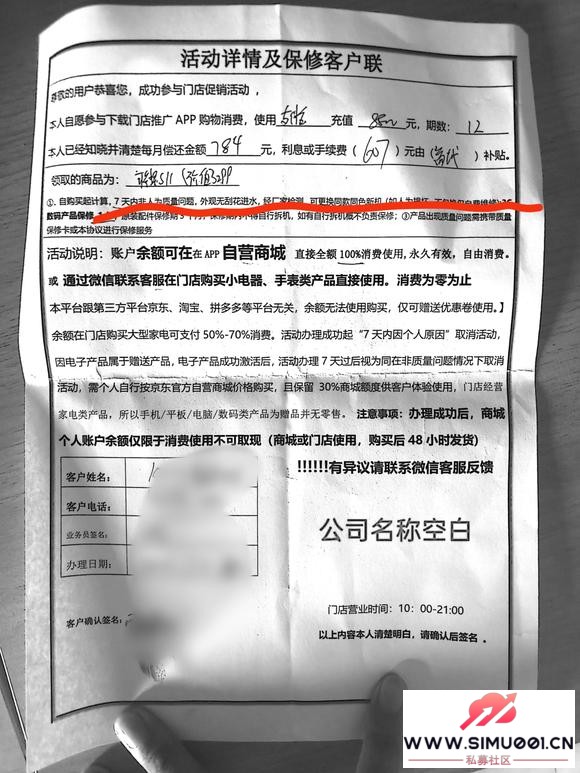 活动详情及保修客户联
尊敬的用户恭喜您，成功参与门店促销活动，
本人自愿参与下载门店推广 APP 购物消费，使用 充值 元，期数：12
本人已经知晓并清楚每月偿还金额 784 元，利息或手续费（607）元由（ ）补贴。
领取的商品为：
①、自购买起计算，7天内非人为质量问题，外观无刮花进水，经厂家检测，可更换同款同色新机
数码产品保修 原装配件保修期3个月，保修期内不得自行拆机，如有自行拆机概不负责保修；③产品出现质量问题需携带质量
保修卡或本协议进行保修服务
活动说明：账户余额可在在 APP 自营商城 直接全额100%消费使用，永久有效，自由消费。
或 通过微信联系客服在门店购买小电器、手表类产品直接使用。消费为零为止
本平台跟第三方平台京东、淘宝、拼多多等平台无关，余额无法使用购买，仅可赠送优惠卷使用。】
余额在门店购买大型家电可支付 50%-70%消费。活动办理成功起“7 天内因个人原因”取消活动，
因电子产品属于赠送产品，电子产品成功激活后，活动办理 7 天过后视为同在非质量问题情况下取消
活动，需个人自行按京东官方自营商城价格购买，且保留 30%商城额度供客户体验使用，门店经营
家电类产品，所以手机/平板/电脑/数码类产品为赠品并无零售。 注意事项：办理成功后，商城
个人账户余额仅限于消费使用不可取现（商城或门店使用，购买后 48 小时发货）
！！！！！！有异议请联系微信客服反馈
客户姓名：
客户电话：
业务员签名：
办理日期：
公司名称空白
客户确认签名：
门店营业时间：10：00-21:00
以上内容本人清楚明白，请确认后签名 。
WWW.SIMU001.CN
私募社区